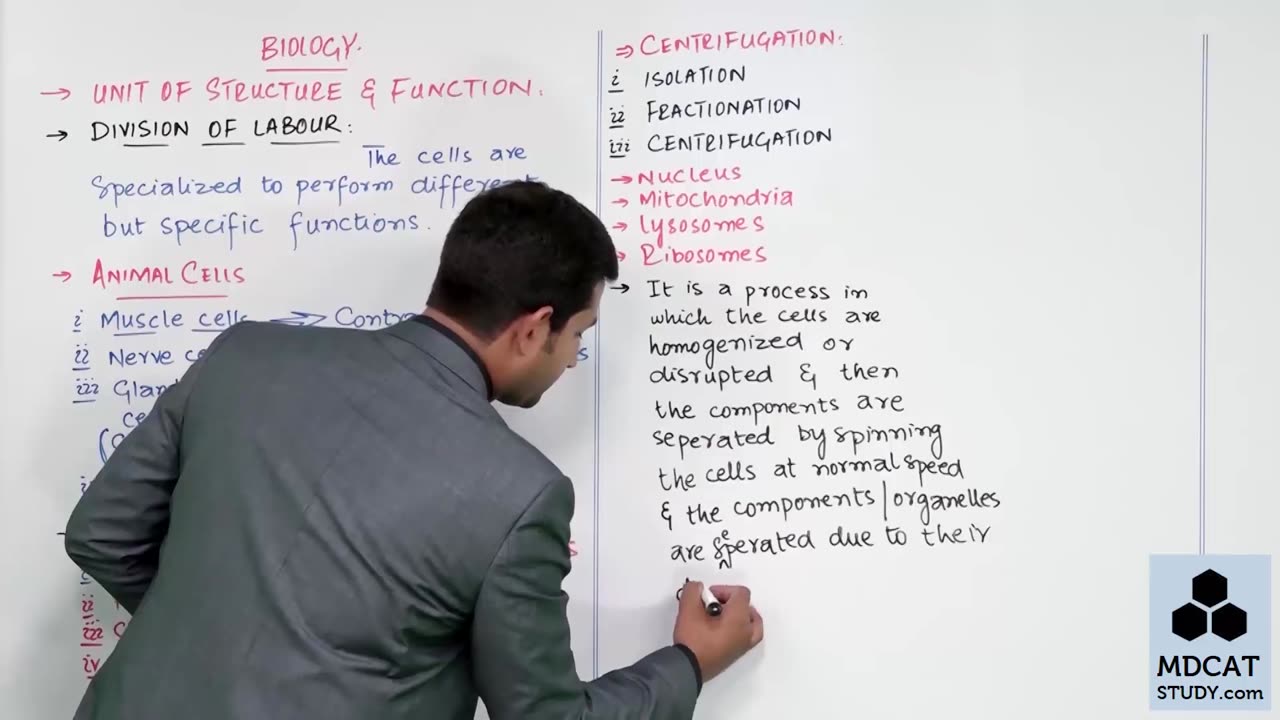 BIOLOGY.
→ UNIT OF STRUCTURE & FUNCTION.
→ DIVISION OF LABOUR:
The cells are
Specialized to perform different
but specific functions.
→ ANIMAL CELLS
i Muscle cells
ii Nerve
iii
⇒ CENTRIFUGATION:
i ISOLATION
ii FRACTIONATION
iii CENTRIFUGATION
→ NUCLEUS
→ Mitochondria
→ Lysosomes
→ Ribosomes
→ It is a process in
which the cells are
homogenized or
disrupted & then
the components are
seperated by spinning
the cells at normal speed
& the components/organelles
are seperated due to their
MDCAT
STUDY.com